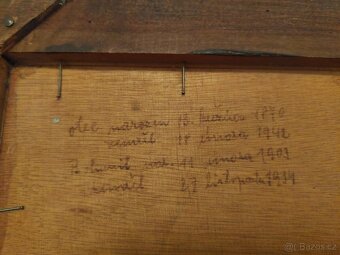 otec narozen 13. března 1870
zemřel 18 února 1942
nar. 11 února 1903
zemřel 27 listopadu 1934
Bazoš.cz